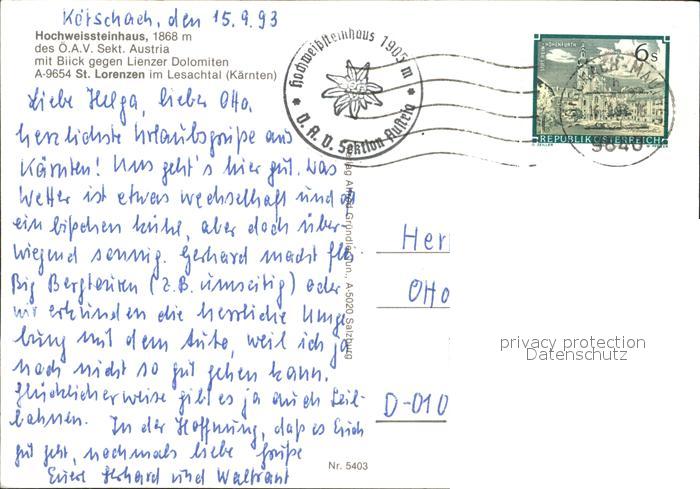 Kötschach, den 15.9.93
Hochweissteinhaus, 1868 m
des Ö.A.V. Sekt. Austria
mit Blick gegen Lienzer Dolomiten
A-9654 St. Lorenzen im Lesachtal (Kärnten)
Liebe Helga, lieber Otto,
herzlichste Urlaubsgrüße aus
Kärnten! Uns geht's hier gut. Das
Wetter ist etwas wechselhaft und
ein bißchen kühl, aber doch über-
wiegend sonnig. Gerhard macht flei-
ßig Bergtouren (z.B. umseitig) oder
wir erkunden die herrliche Umge-
bung mit dem Auto, weil ich ja
noch nicht so gut gehen kann.
Glücklicherweise gibt es ja auch Seil-
bahnen. In der Hoffnung, daß es Euch
gut geht, nochmals liebe Grüße
Eure Gerhard und Waltraut
Hochweißsteinhaus 1905 m
Ö.A.V. Sektion Austria
6 s
STIFT REIN-HOHENFURTH
REPUBLIK ÖSTERREICH
9640
A-5020 Salzburg
Her
Otto
D-010
privacy protection
Datenschutz
Nr. 5403